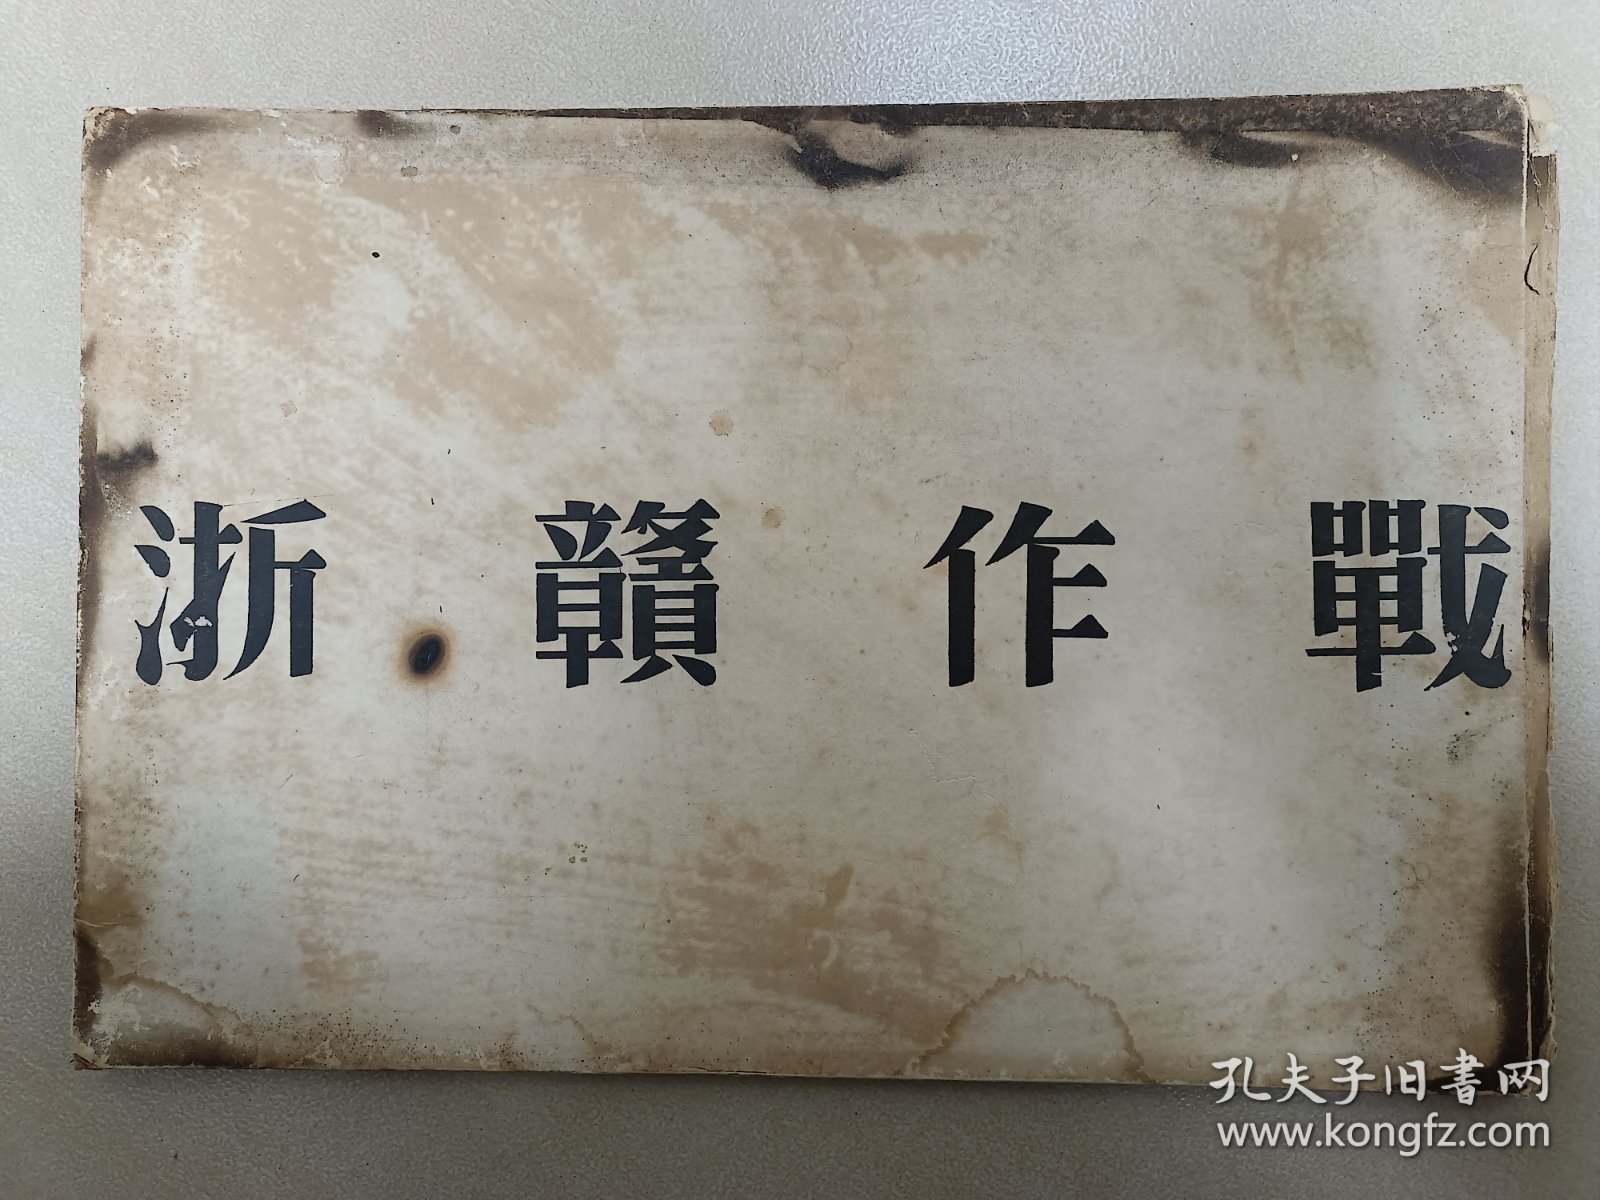 浙贛作戰
孔夫子旧書网
www.kongfz.com